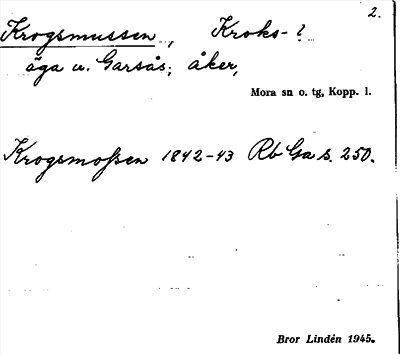 2.
Krogsmussen, Kroks-?
äga u. Garsås; åker,
Mora sn o. tg, Kopp. l.
Krogsmofsen 1842-43 Rb Ga s. 250.
Bror Lindén 1945.